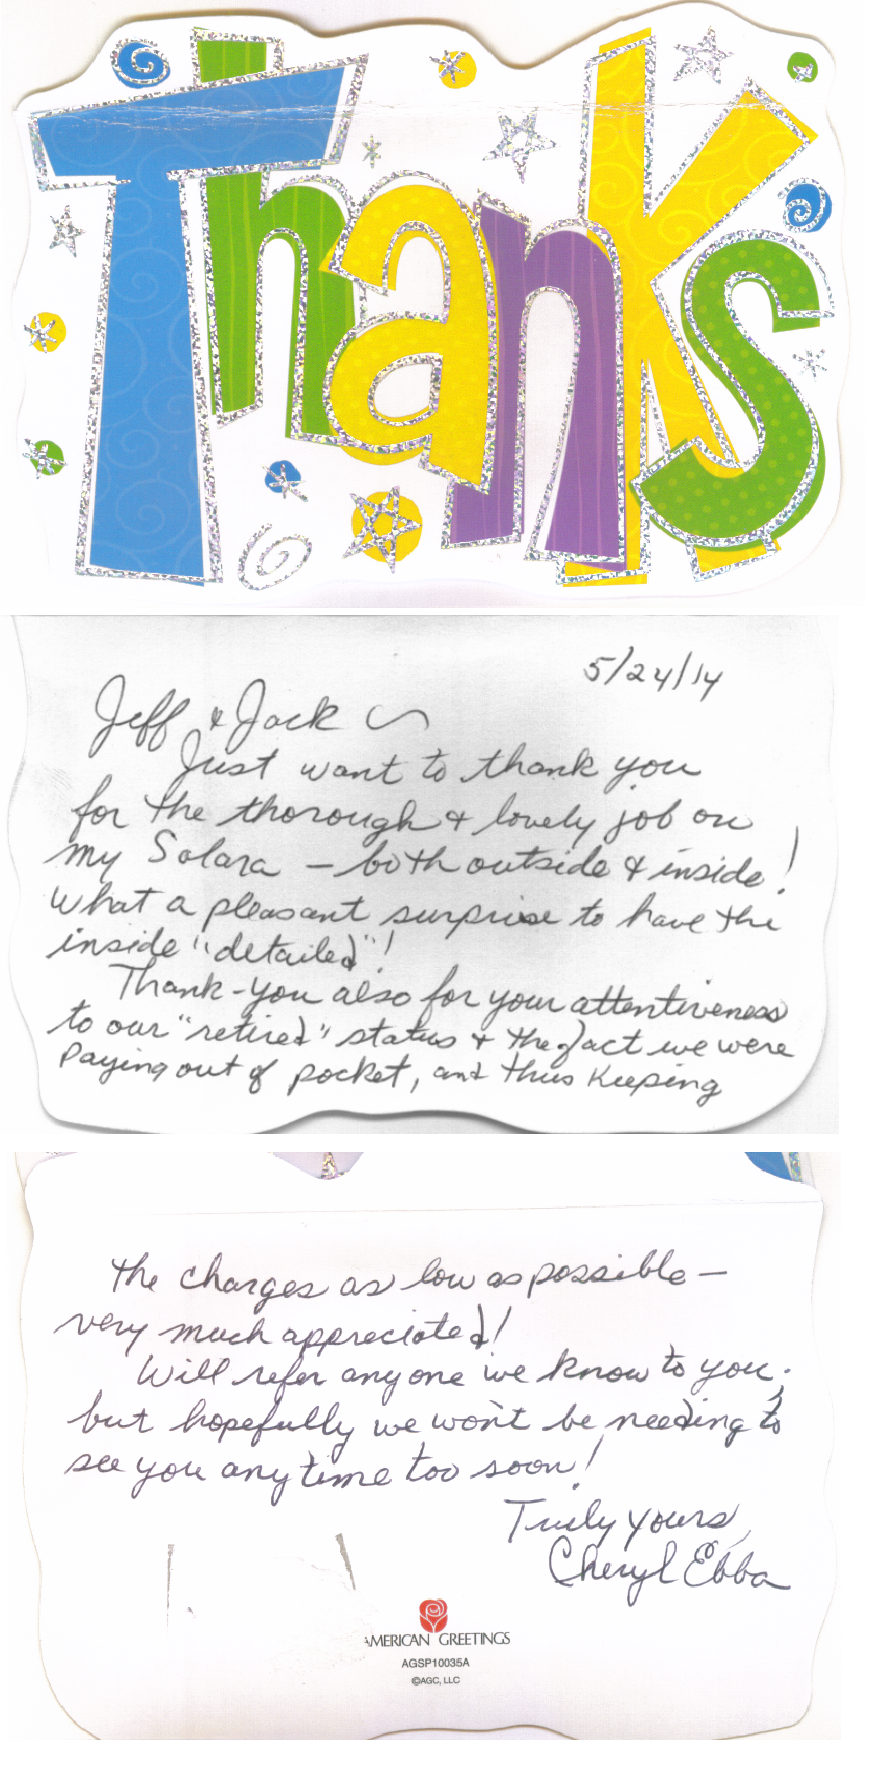 Thanks
5/24/14
Jeff & Jack ~
Just want to thank you
for the thorough & lovely job on
my Solara – both outside & inside!
What a pleasant surprise to have the
inside "detailed"!
Thank-you also for your attentiveness
to our "retired" status & the fact we were
paying out of pocket, and thus keeping
the charges as low as possible –
very much appreciated!
Will refer anyone we know to you;
but hopefully we won't be needing to
see you anytime too soon!
Truly yours,
Cheryl Ebba
AMERICAN GREETINGS
AGSP10035A
©AGC, LLC